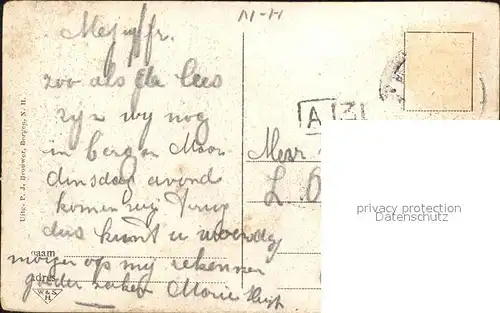 N-H
Mejuffr.
zoo als U lees
zijn wij nog
in bergen Maar
dinsdag avond
komen wij terug
dus kunt U woensdag
morgen op mij rekenen
goeden zaken Marie
A 3
Mevr
Uitg. P. J. Brouwer, Bergen, N. H.
naam
adres
W & S
H
privacy protection
Datenschutz